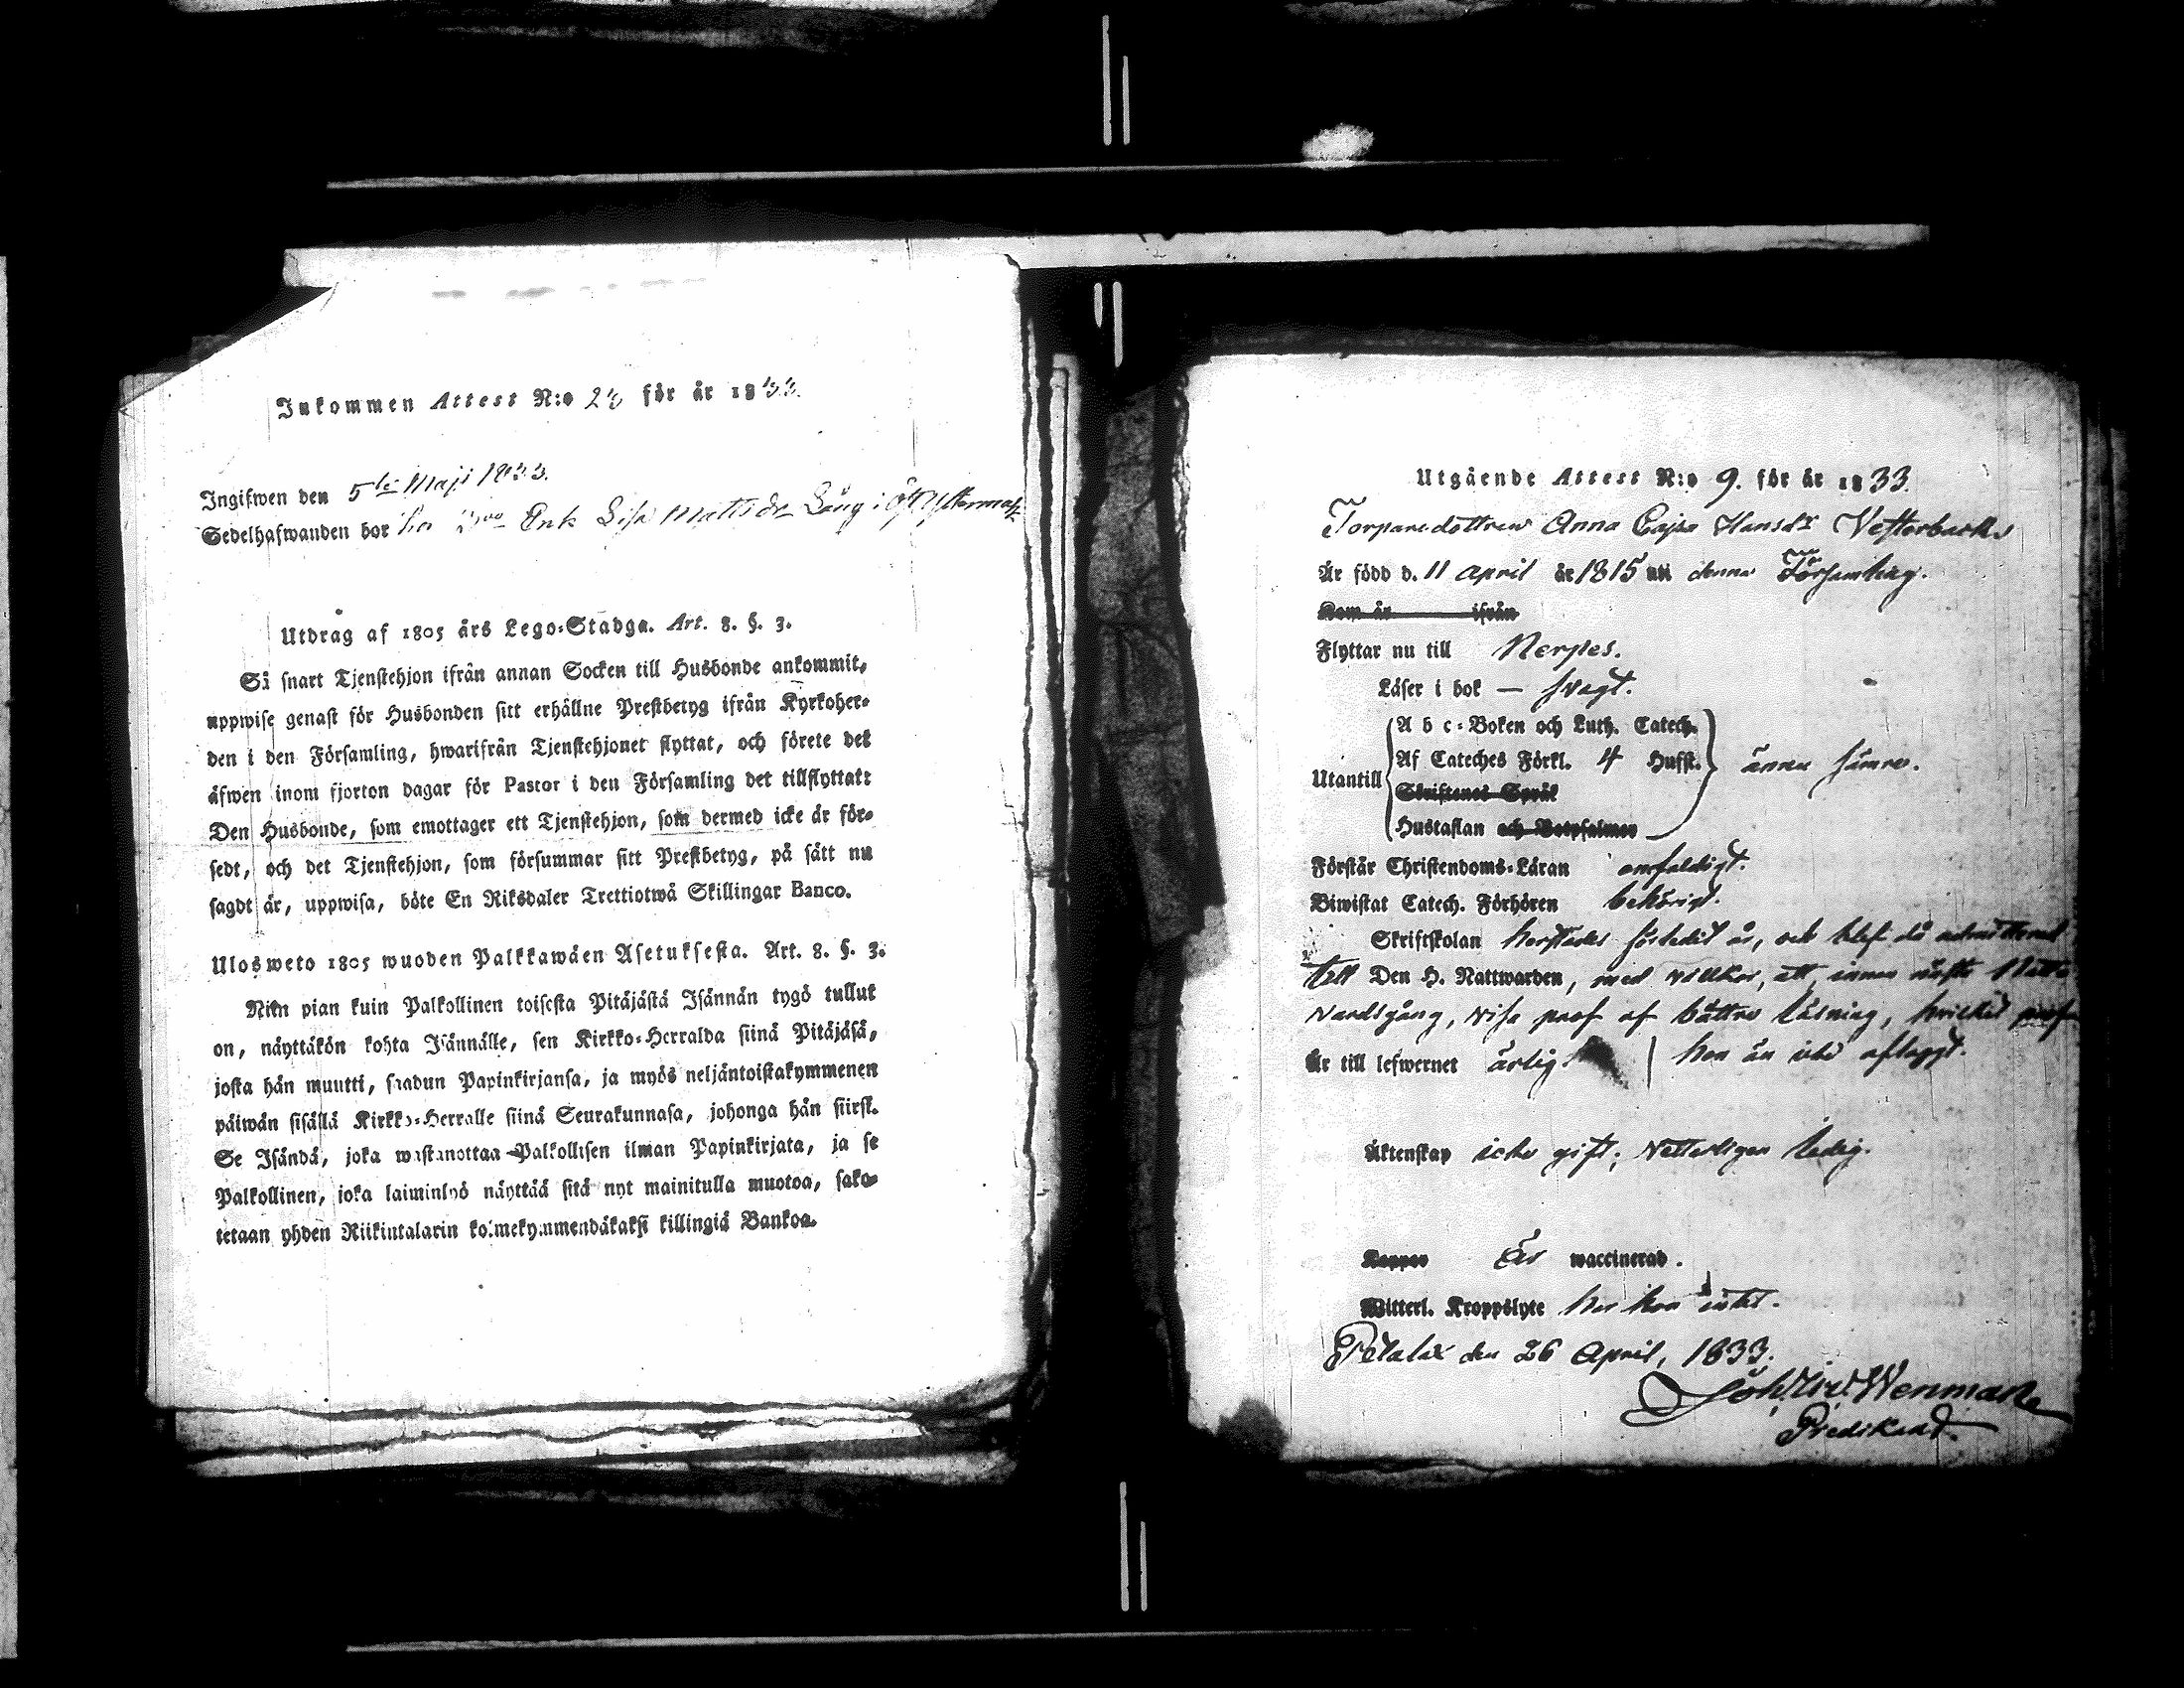 Inkommen Attest N:o 26 för år 1833.
Ingifwen den 5te Maji 1833.
Sedelhafwanden bor hos Enk. Lisa Mattsdr Lång i Öf Yttermark
Utdrag af 1805 års Lego-Stadga. Art. 8. §. 3.
Så snart Tjenstehjon ifrån annan Socken till Husbonde ankommit,
uppwise genast för Husbonden sitt erhållne Prestbetyg ifrån Kyrkoher-
den i den Församling, hwarifrån Tjenstehjonet flyttat, och förete det
äfwen inom fjorton dagar för Pastor i den Församling det tillflyttat:
Den Husbonde, som emottager ett Tjenstehjon, som dermed icke är för-
sedt, och det Tjenstehjon, som försummar sitt Prestbetyg, på sätt nu
sagdt är, uppwisa, böte En Riksdaler Trettiotwå Skillingar Banco.
Ulosweto 1805 wuoden Palkkawäen Asetuksesta. Art. 8. §. 3.
Niin pian kuin Palkollinen toisesta Pitäjästä Isännän tygö tullut
on, näyttäkön kohta Isännälle, sen Kirkko-Herralda siinä Pitäjäsä,
josta hän muutti, saadun Papinkirjansa, ja myös neljäntoistakymmenen
päiwän sisällä Kirkko-Herralle siinä Seurakunnasa, johonga hän siirst.
Se Isändä, joka wastanottaa Palkollisen ilman Papinkirjata, ja se
Palkollinen, joka laiminlyö näyttää sitä nyt mainitulla muotoa, sako-
tetaan yhden Riikintalarin kolmekymmendäkaksi killingiä Bankoa.
Utgående Attest N:o 9. för år 1833.
Torparedottren Anna Cajsa Hansdr Vesterbacks
Är född d. 11 April år 1815 uti denna Församling.
Kom år ifrån
Flyttar nu till Nerpes.
Läser i bok — svagt.
A b c-Boken och Luth. Catech.
Utantill Af Cateches Förkl. 4 Hufst. ännu sämre.
Skriftenes Språk
Hustaflan och Botpsalmer
Förstår Christendoms-Läran enfaldigt.
Biwistat Catech. Förhören behörigt.
Skriftskolan härstädes förledit år, och blef då admitterad
till Den H. Nattwarden, med villkor, att innan nästa Natt-
vardsgång, visa prof af bättre läsning, hvilket prof
Är till lefwernet ärlig. hon än icke aflaggt.
Äktenskap icke gift; Vetterligen ledig.
Koppor Är waccinerad.
Witterl. Kroppslyte har hon intet.
Petalax den 26 April, 1833.
Joh. Wenman
Predikant.